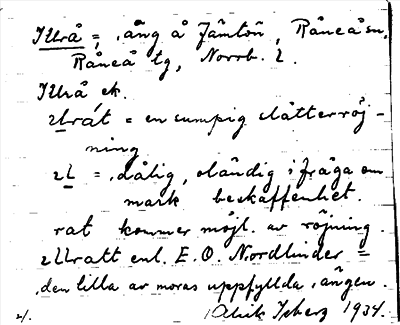 Illrå =, äng å Jämtön, Råneå sn,
Råneå tg, Norrb. l.
Illrå ek.
Ulrát = en sumpig slåtterröj-
ning
ul =, dålig, oländig i fråga om
mark beskaffenhet.
rat kommer möjl. av röjning.
Ullratt enl. E. O. Nordlinder =
den lilla av moras uppfyllda ängen.
1934.